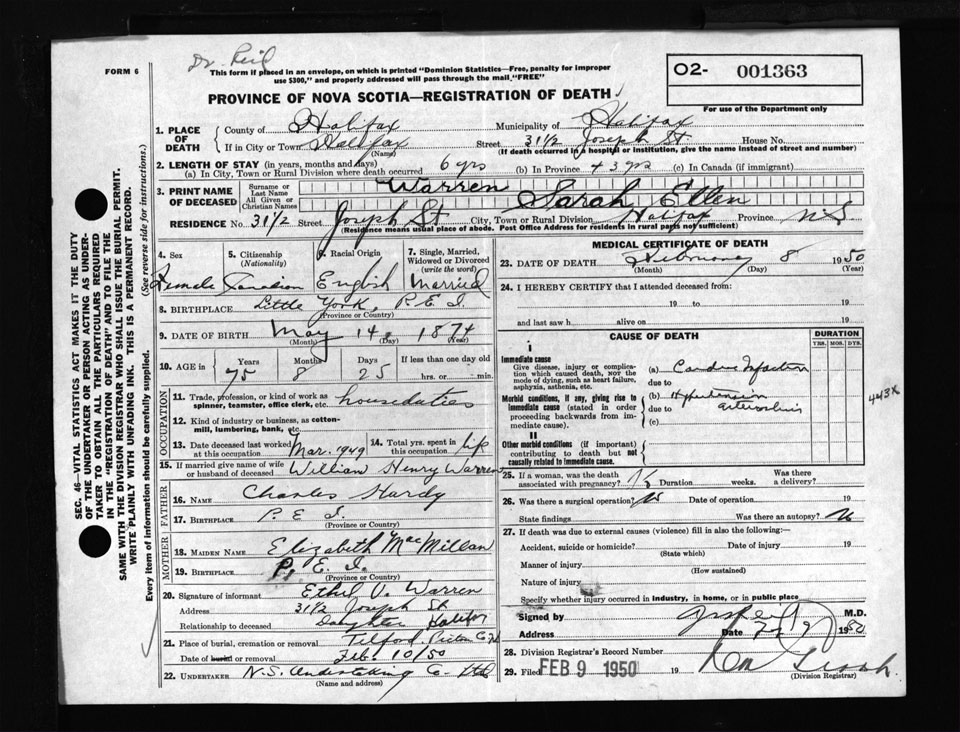 FORM 6
Dr. Reid
This form if placed in an envelope, on which is printed "Dominion Statistics—Free, penalty for improper
use $300," and properly addressed will pass through the mail "FREE"
02- 001363
For use of the Department only
PROVINCE OF NOVA SCOTIA—REGISTRATION OF DEATH
1. PLACE OF DEATH
County of Halifax Municipality of Halifax
If in City or Town Halifax (Name) Street 31 1/2 Joseph St House No.
(If death occurred in a hospital or institution, give the name instead of street and number)
2. LENGTH OF STAY (in years, months and days)
(a) In City, Town or Rural Division where death occurred 6 yrs (b) In Province 43 yrs (c) In Canada (if immigrant)
3. PRINT NAME OF DECEASED
Surname or Last Name Warren
All Given or Christian Names Sarah Ellen
RESIDENCE No. 31 1/2 Street Joseph St City, Town or Rural Division Halifax Province N.S
(Residence means usual place of abode. Post Office Address for residents in rural parts not sufficient)
4. Sex Female
5. Citizenship (Nationality) Canadian
6. Racial Origin English
7. Single, Married, Widowed or Divorced (write the word) Married
8. BIRTHPLACE Little York, P.E.I.
(Province or Country)
9. DATE OF BIRTH May 14, 1874
(Month) (Day) (Year)
10. AGE in Years 75 Months 8 Days 25 If less than one day old hrs. or min.
OCCUPATION
11. Trade, profession, or kind of work as spinner, teamster, office clerk, etc. houseduties
12. Kind of industry or business, as cotton-mill, lumbering, bank, etc.
13. Date deceased last worked at this occupation Mar. 1949
14. Total yrs. spent in this occupation life
15. If married give name of wife or husband of deceased William Henry Warren
FATHER
16. NAME Charles Hardy
17. BIRTHPLACE P.E.I.
(Province or Country)
MOTHER
18. MAIDEN NAME Elizabeth MacMillan
19. BIRTHPLACE P.E.I.
(Province or Country)
20. Signature of informant Ethel V. Warren
Address 31 1/2 Joseph St
Halifax
Relationship to deceased Daughter
21. Place of burial, cremation or removal Telford, Pictou Co
Date of burial or removal Feb. 10/50
22. UNDERTAKER N.S. Undertaking Co. Ltd
(Name and address)
MEDICAL CERTIFICATE OF DEATH
23. DATE OF DEATH February 8 1950
(Month) (Day) (Year)
24. I HEREBY CERTIFY that I attended deceased from:
19 to 19
and last saw h alive on 19
CAUSE OF DEATH
DURATION
YRS. MOS. DYS.
I
Immediate cause
Give disease, injury or complication which caused death, NOT the mode of dying, such as heart failure, asphyxia, asthenia, etc.
(a) Cardiac Infarction
due to
Morbid conditions, if any, giving rise to immediate cause (stated in order proceeding backwards from immediate cause).
(b) Hypertension
due to arteriosclerosis
(c)
443X
II
Other morbid conditions (if important) contributing to death but not causally related to immediate cause.
25. If a woman, was the death associated with pregnancy? No Duration weeks. Was there a delivery?
26. Was there a surgical operation? No Date of operation 19
State findings Was there an autopsy? No
27. If death was due to external causes (violence) fill in also the following:—
Accident, suicide or homicide? Date of injury 19
(State which)
Manner of injury
(How sustained)
Nature of injury
Specify whether injury occurred in industry, in home, or in public place
Signed by M.D.
Address Date 1950
28. Division Registrar's Record Number
29. Filed FEB 9 1950 19
(Division Registrar)
SEC. 46—VITAL STATISTICS ACT MAKES IT THE DUTY
OF THE UNDERTAKER OR PERSON ACTING AS UNDER-
TAKER TO OBTAIN ALL THE PARTICULARS REQUIRED
IN THE "REGISTRATION OF DEATH" AND TO FILE THE
SAME WITH THE DIVISION REGISTRAR WHO SHALL ISSUE THE BURIAL PERMIT.
WRITE PLAINLY WITH UNFADING INK. THIS IS A PERMANENT RECORD.
Every item of information should be carefully supplied. (See reverse side for instructions.)